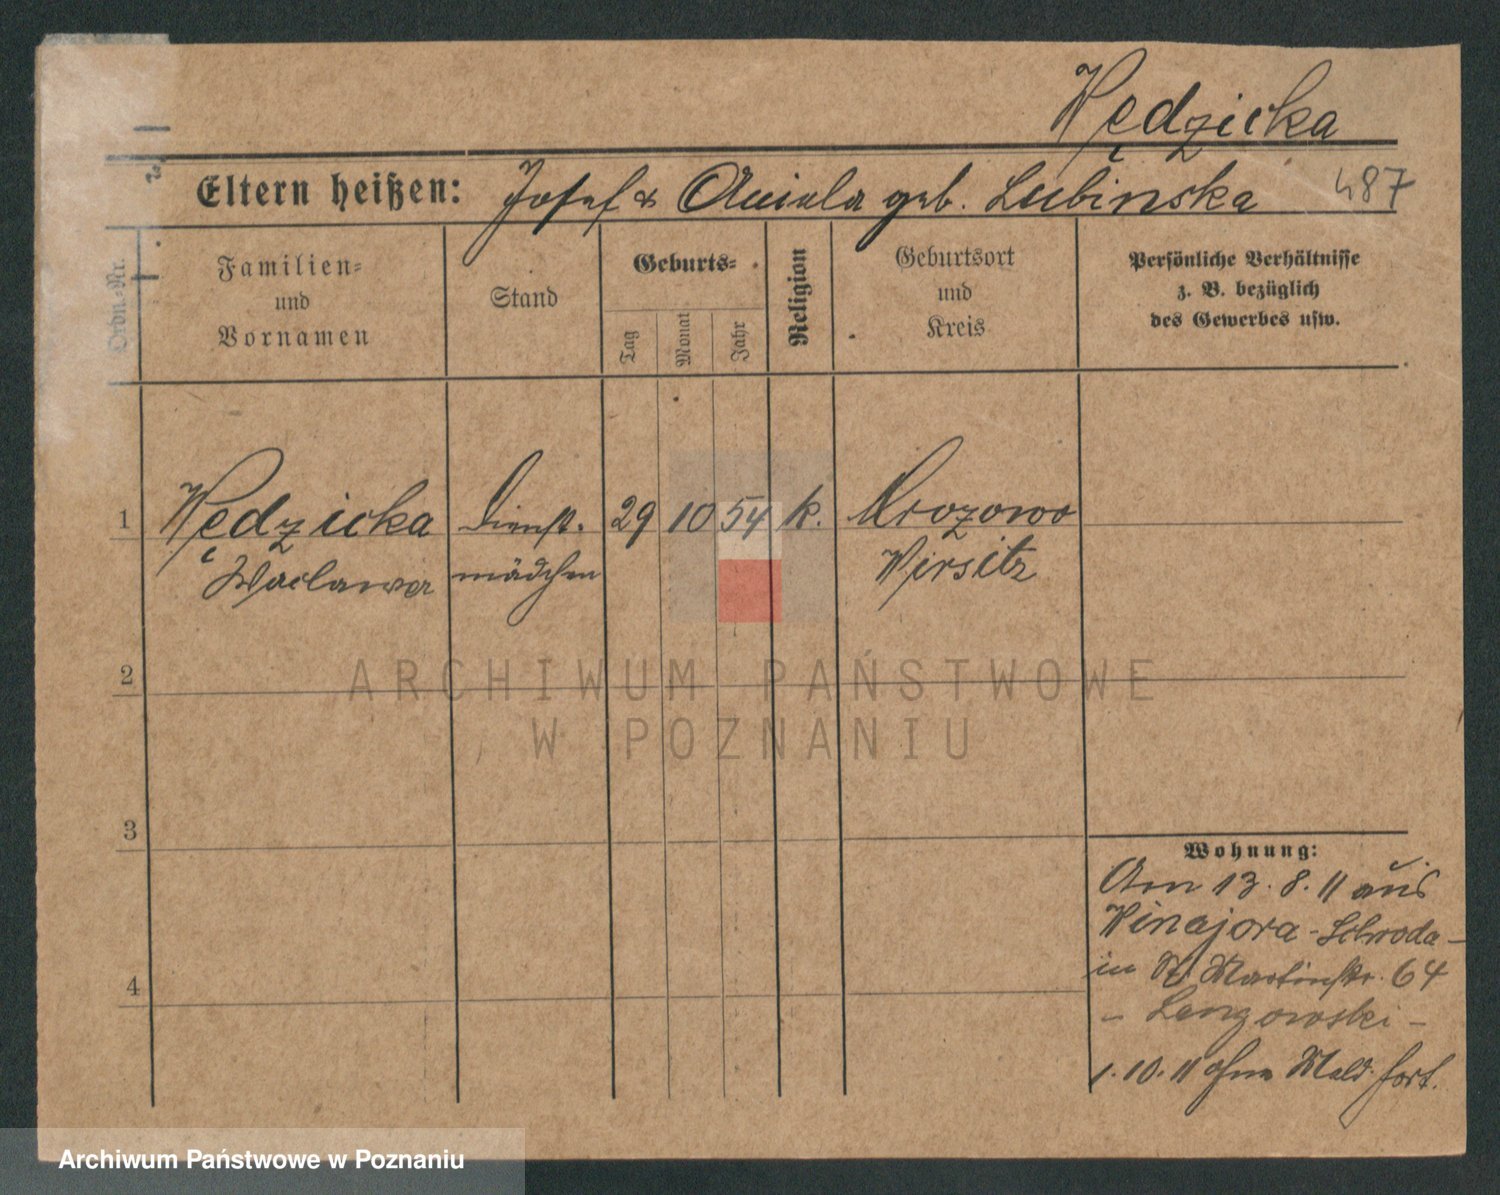 Wędzicka
Eltern heißen: Josef & Aniela geb. Lubinska 487
Ordn.-Nr.
Familien-
und
Vornamen
Stand
Geburts-
Tag
Monat
Jahr
Religion
Geburtsort
und
Kreis
Persönliche Verhältnisse
z. B. bezüglich
des Gewerbes usw.
1 Wędzicka Dienst- 29 10 54 k. Mrozowo
Waclawa mädchen Wirsitz
2
3
4
Wohnung:
Am 13.8.11 aus
Winagora - Schroda -
in St Martinstr. 64
-
1.10.11 ohne Meld. fort.
ARCHIWUM PAŃSTWOWE
W POZNANIU
Archiwum Państwowe w Poznaniu